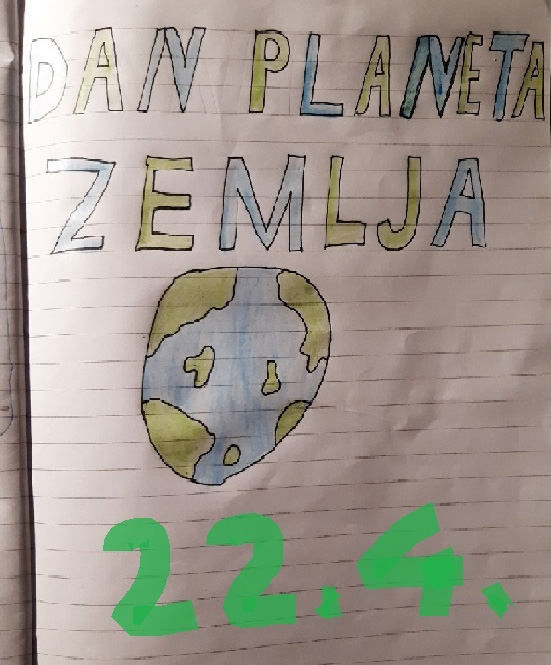 DAN PLANETA
ZEMLJA
22.4.